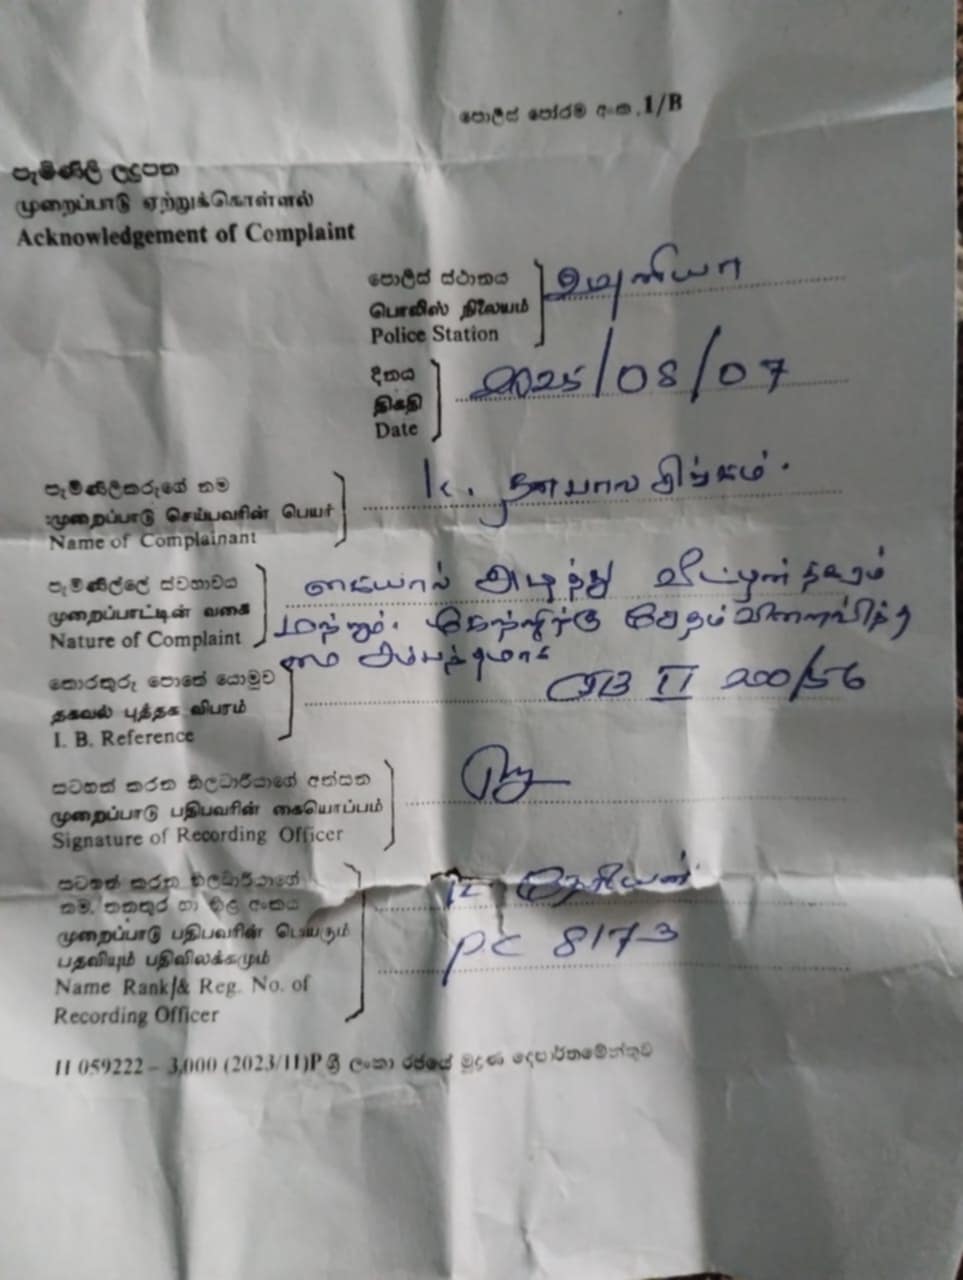 පොලිස් පෝරම අංක .1/B
පැමිණිලි ලදුපත
முறைப்பாடு ஏற்றுக்கொள்ளல்
Acknowledgement of Complaint
පොලිස් ස්ථානය
பொலிஸ் நிலையம்
Police Station
වවුனියා
දිනය
திகதி
Date
2025/08/07
පැමිණිලිකරුගේ නම
முறைப்பாடு செய்பவரின் பெயர்
Name of Complainant
K. தனபாலசிங்கம்.
පැමිණිල්ලේ ස්වභාවය
முறைப்பாட்டின் வகை
Nature of Complaint
கையால் அடித்து வீட்டின் தகரம்
மற்றும். சேதம் விளைவித்த
மை சம்பந்தமாக
තොරතුරු පොතේ යොමුව
தகவல் புத்தக விபரம்
I. B. Reference
CIB II 200/56
සටහන් කරන නිලධාරියාගේ අත්සන
முறைப்பாடு பதிபவரின் கையொப்பம்
Signature of Recording Officer
සටහන් කරන නිලධාරියාගේ
නම, තනතුර හා නිල අංකය
முறைப்பாடு பதிபவரின் பெயரும்
பதவியும் பதிவிலக்கமும்
Name Rank/& Reg. No. of
Recording Officer
PC 8173
H 059222 – 3,000 (2023/11)P ශ්‍රී ලංකා රජයේ මුද්‍රණ දෙපාර්තමේන්තුව